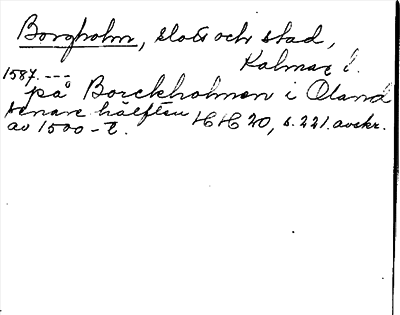 Borgholm, slott och stad,
Kalmar l.
1587. ---
på Borckholmen i Öland
senare hälften HH 20, s. 221. avskr.
av 1500-t.